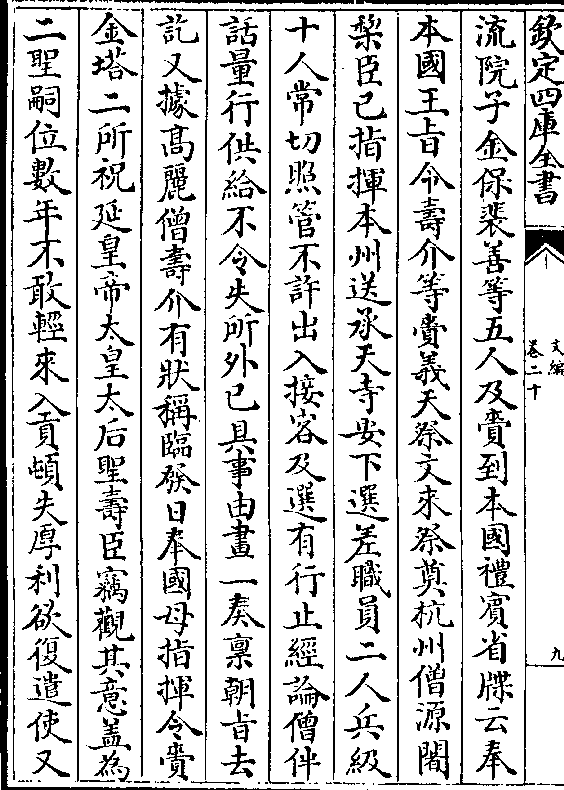 欽定四庫全書
文編
卷二十
九
流院子金保裴善等五人及賫到本國禮賓省牒云奉
本國王旨令壽介等賫義天祭文来祭奠杭州僧源闍
棃臣已指揮本州送承天寺安下選差職員二人兵級
十人常切照管不許出入接客及選有行止經論僧伴
話量行供給不令失所外已具事由畫一奏禀朝旨去
訖又據髙麗僧壽介有狀稱臨發日奉國母指揮令賫
金塔二所祝延皇帝太皇太后聖壽臣竊觀其意盖為
二聖嗣位數年不敢輕來入貢頓失厚利欲復遣使又